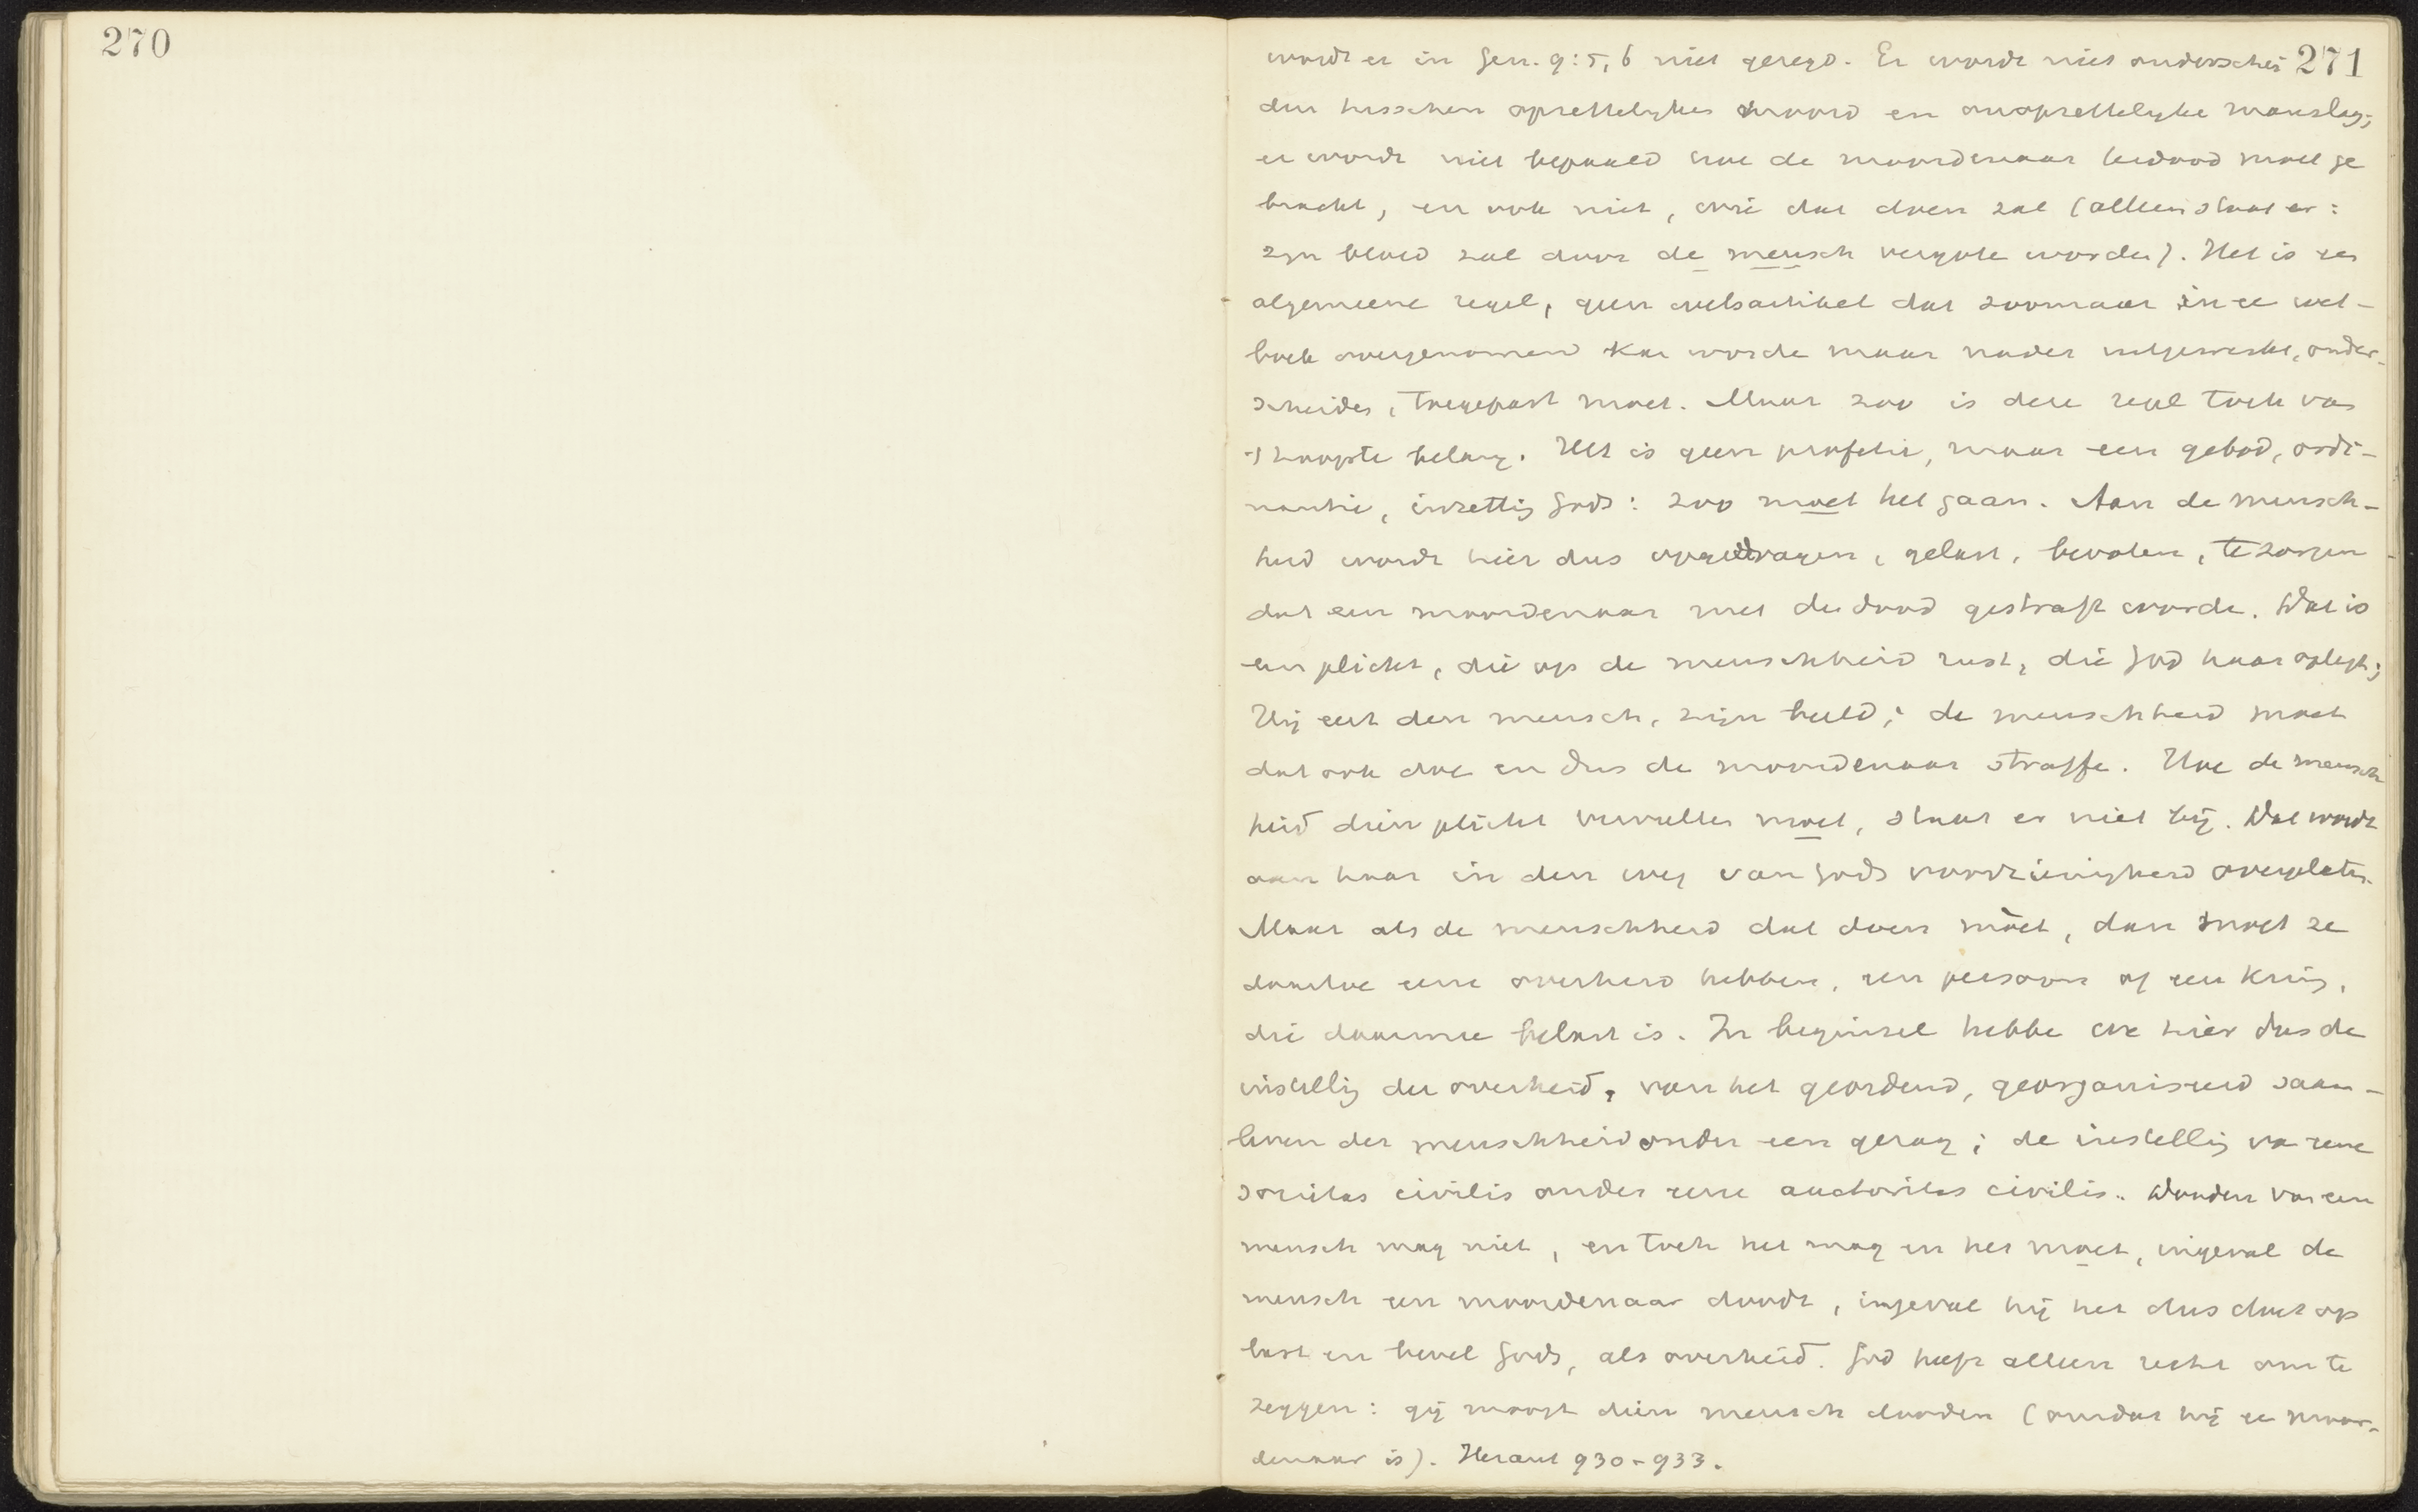 270
271
wordt er in Gen. 9:5, 6 niet gezegd. Er wordt niet onderschei
den tusschen opzettelyken moord en onopzettelyke manslag;
er wordt niet bepaald hoe de moordenaar terdood moet ge
bracht, en ook niet, wie dat doen zal (alleen staat er:
zyn bloed zal door de mensch vergote worden). Het is een
algemeene regel, geen wetsartikel dat zoomaar in ee wet-
boek overgenomen kan worde maar nader uitgewerkt, onder-
scheiden, toegepast moet. Maar zoo is deze regel toch van
't hoogste belang. Het is geen profetie, maar een gebod, ordi-
nantie, inzettig Gods: zoo moet het gaan. Aan de mensch-
heid wordt hier dus opgedragen, gelast, bevolen, te zorgen
dat een moordenaar met de dood gestraft worde. Dat is
een plicht, die op de menschheid rust, die God haar oplegt;
Hij eert den mensch, zijn beeld; de menschheid moet
dat ook doe en dus de moordenaar straffe. Hoe de mensch
heid dien plicht vervullen moet, staat er niet bij. Dat wordt
aan haar in den weg van Gods voorzienigheid overgelaten.
Maar als de menschheid dat doen moet, dan moet ze
daartoe eene overheid hebben, een persoon of een kring,
die daarmee belast is. In beginsel hebbe we hier dus de
instellig der overheid, van het geordend, georganiseerd saam-
leven der menschheid onder een gezag; de instellig va eene
societas civilis onder eene auctoritas civilis. Dooden van een
mensch mag niet, en toch het mag en het moet, ingeval de
mensch een moordenaar doodt, ingeval hij het dus doet op
last en bevel Gods, als overheid. God heeft alleen recht om te
zeggen: gij moogt dien mensch dooden (omdat hij ee moor-
denaar is). Heraut 930-933.